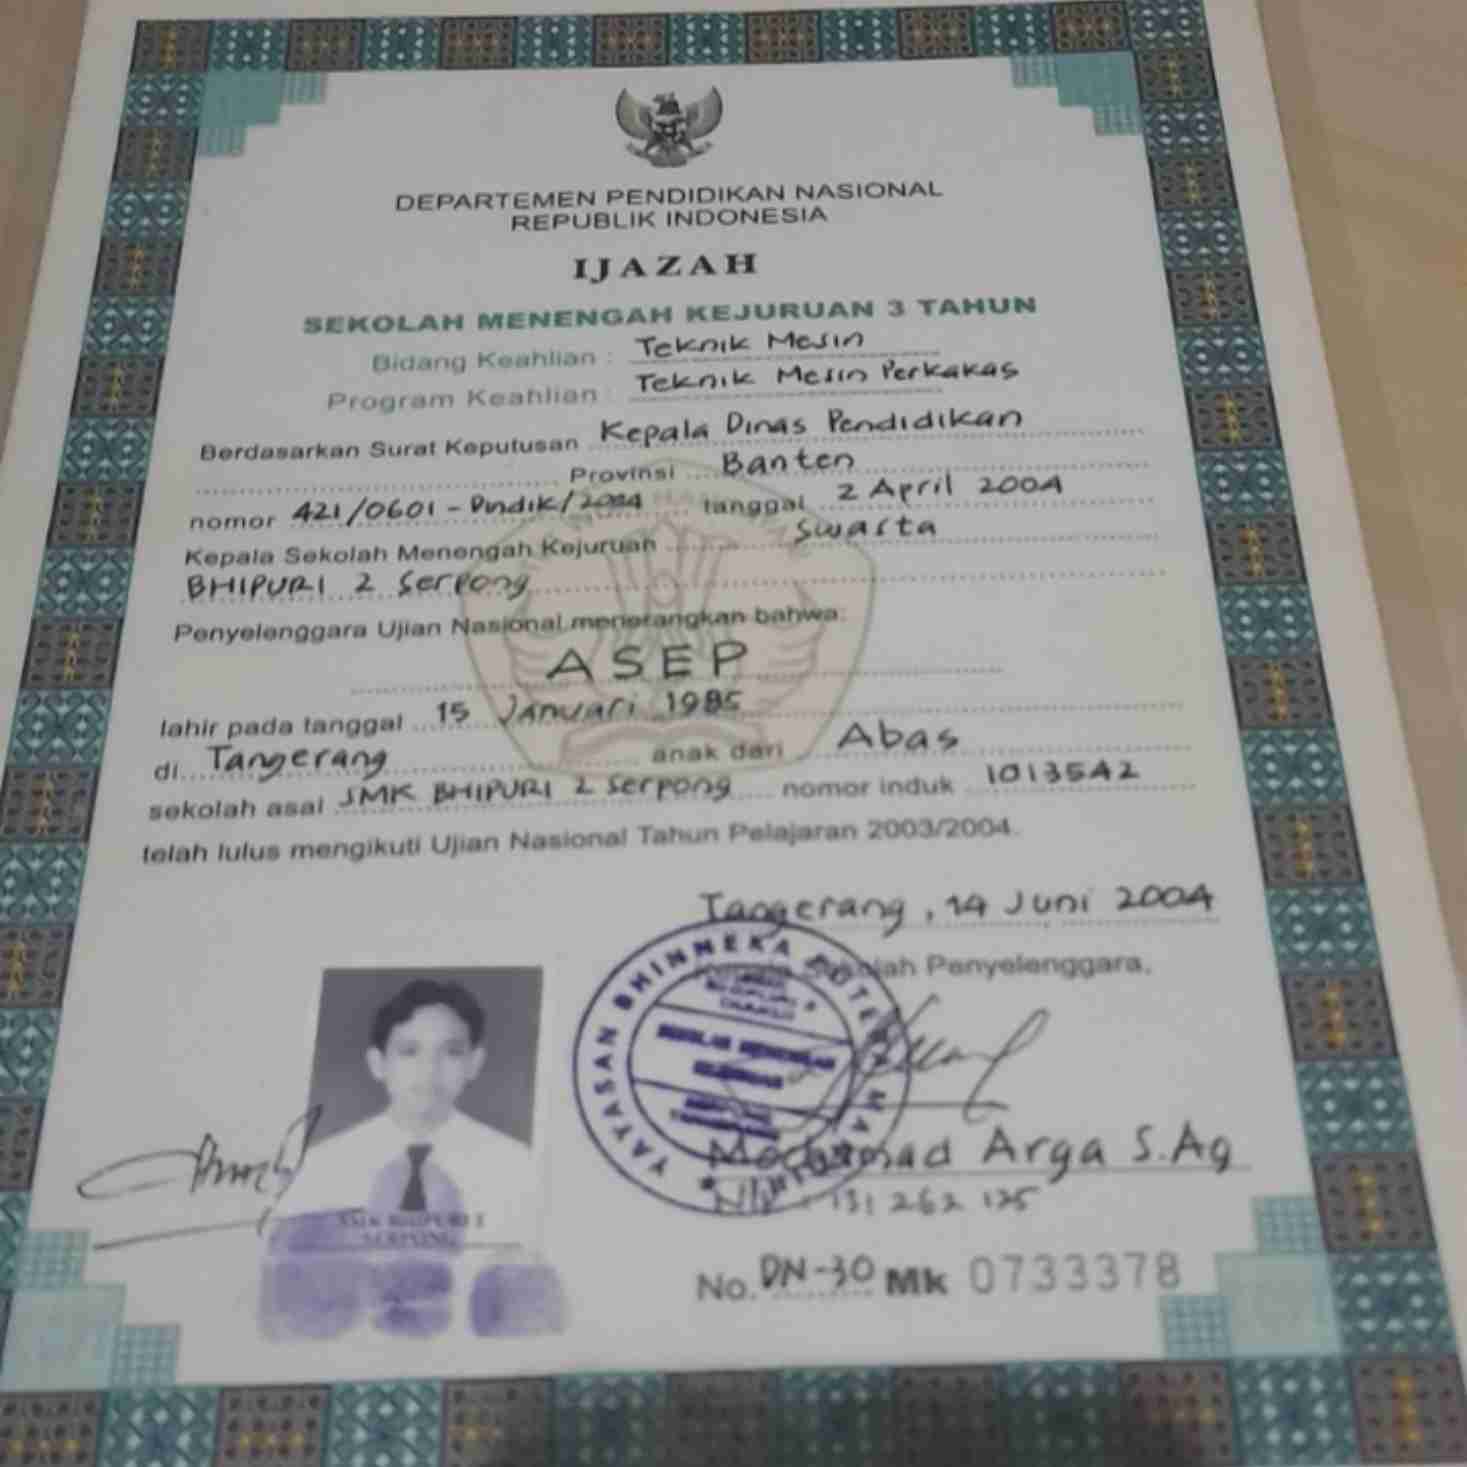 DEPARTEMEN PENDIDIKAN NASIONAL
REPUBLIK INDONESIA
IJAZAH
SEKOLAH MENENGAH KEJURUAN 3 TAHUN
Bidang Keahlian : Teknik Mesin
Program Keahlian : Teknik Mesin Perkakas
Berdasarkan Surat Keputusan Kepala Dinas Pendidikan
Provinsi Banten
nomor 421/0601-Pndik/2004 tanggal 2 April 2004
Kepala Sekolah Menengah Kejuruan Swasta
BHIPURI 2 Serpong
Penyelenggara Ujian Nasional menerangkan bahwa:
ASEP
lahir pada tanggal 15 Januari 1985
di Tangerang anak dari Abas
sekolah asal SMK BHIPURI 2 Serpong nomor induk 1013542
telah lulus mengikuti Ujian Nasional Tahun Pelajaran 2003/2004.
Tangerang, 14 Juni 2004
Sekolah Penyelenggara,
YAYASAN BHINNEKA
SEKOLAH MENENGAH
KEJURUAN
Mochamad Arga S.Ag
Nip. 131 262 125
SMK BHIPURI 2
SERPONG
No. DN-30 Mk 0733378